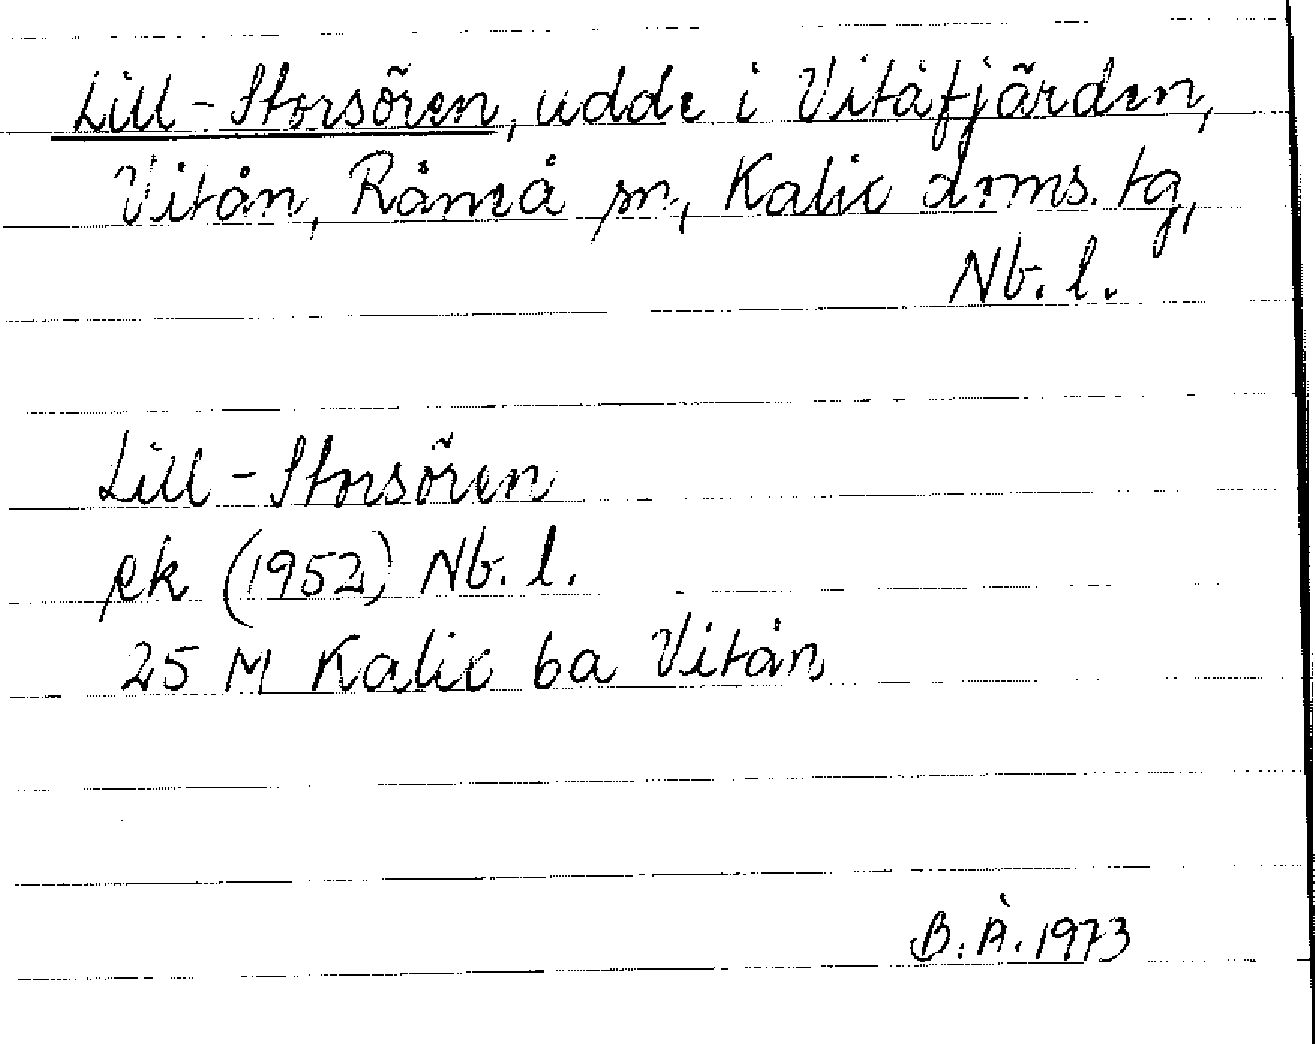 Lill-Storsören, udde i Vitåfjärden,
Vitån, Råneå sn, Kalix doms. tg,
Nb. l.
Lill-Storsören
ek (1952) Nb. l.
25 M Kalix 6a Vitån
B. Å. 1973